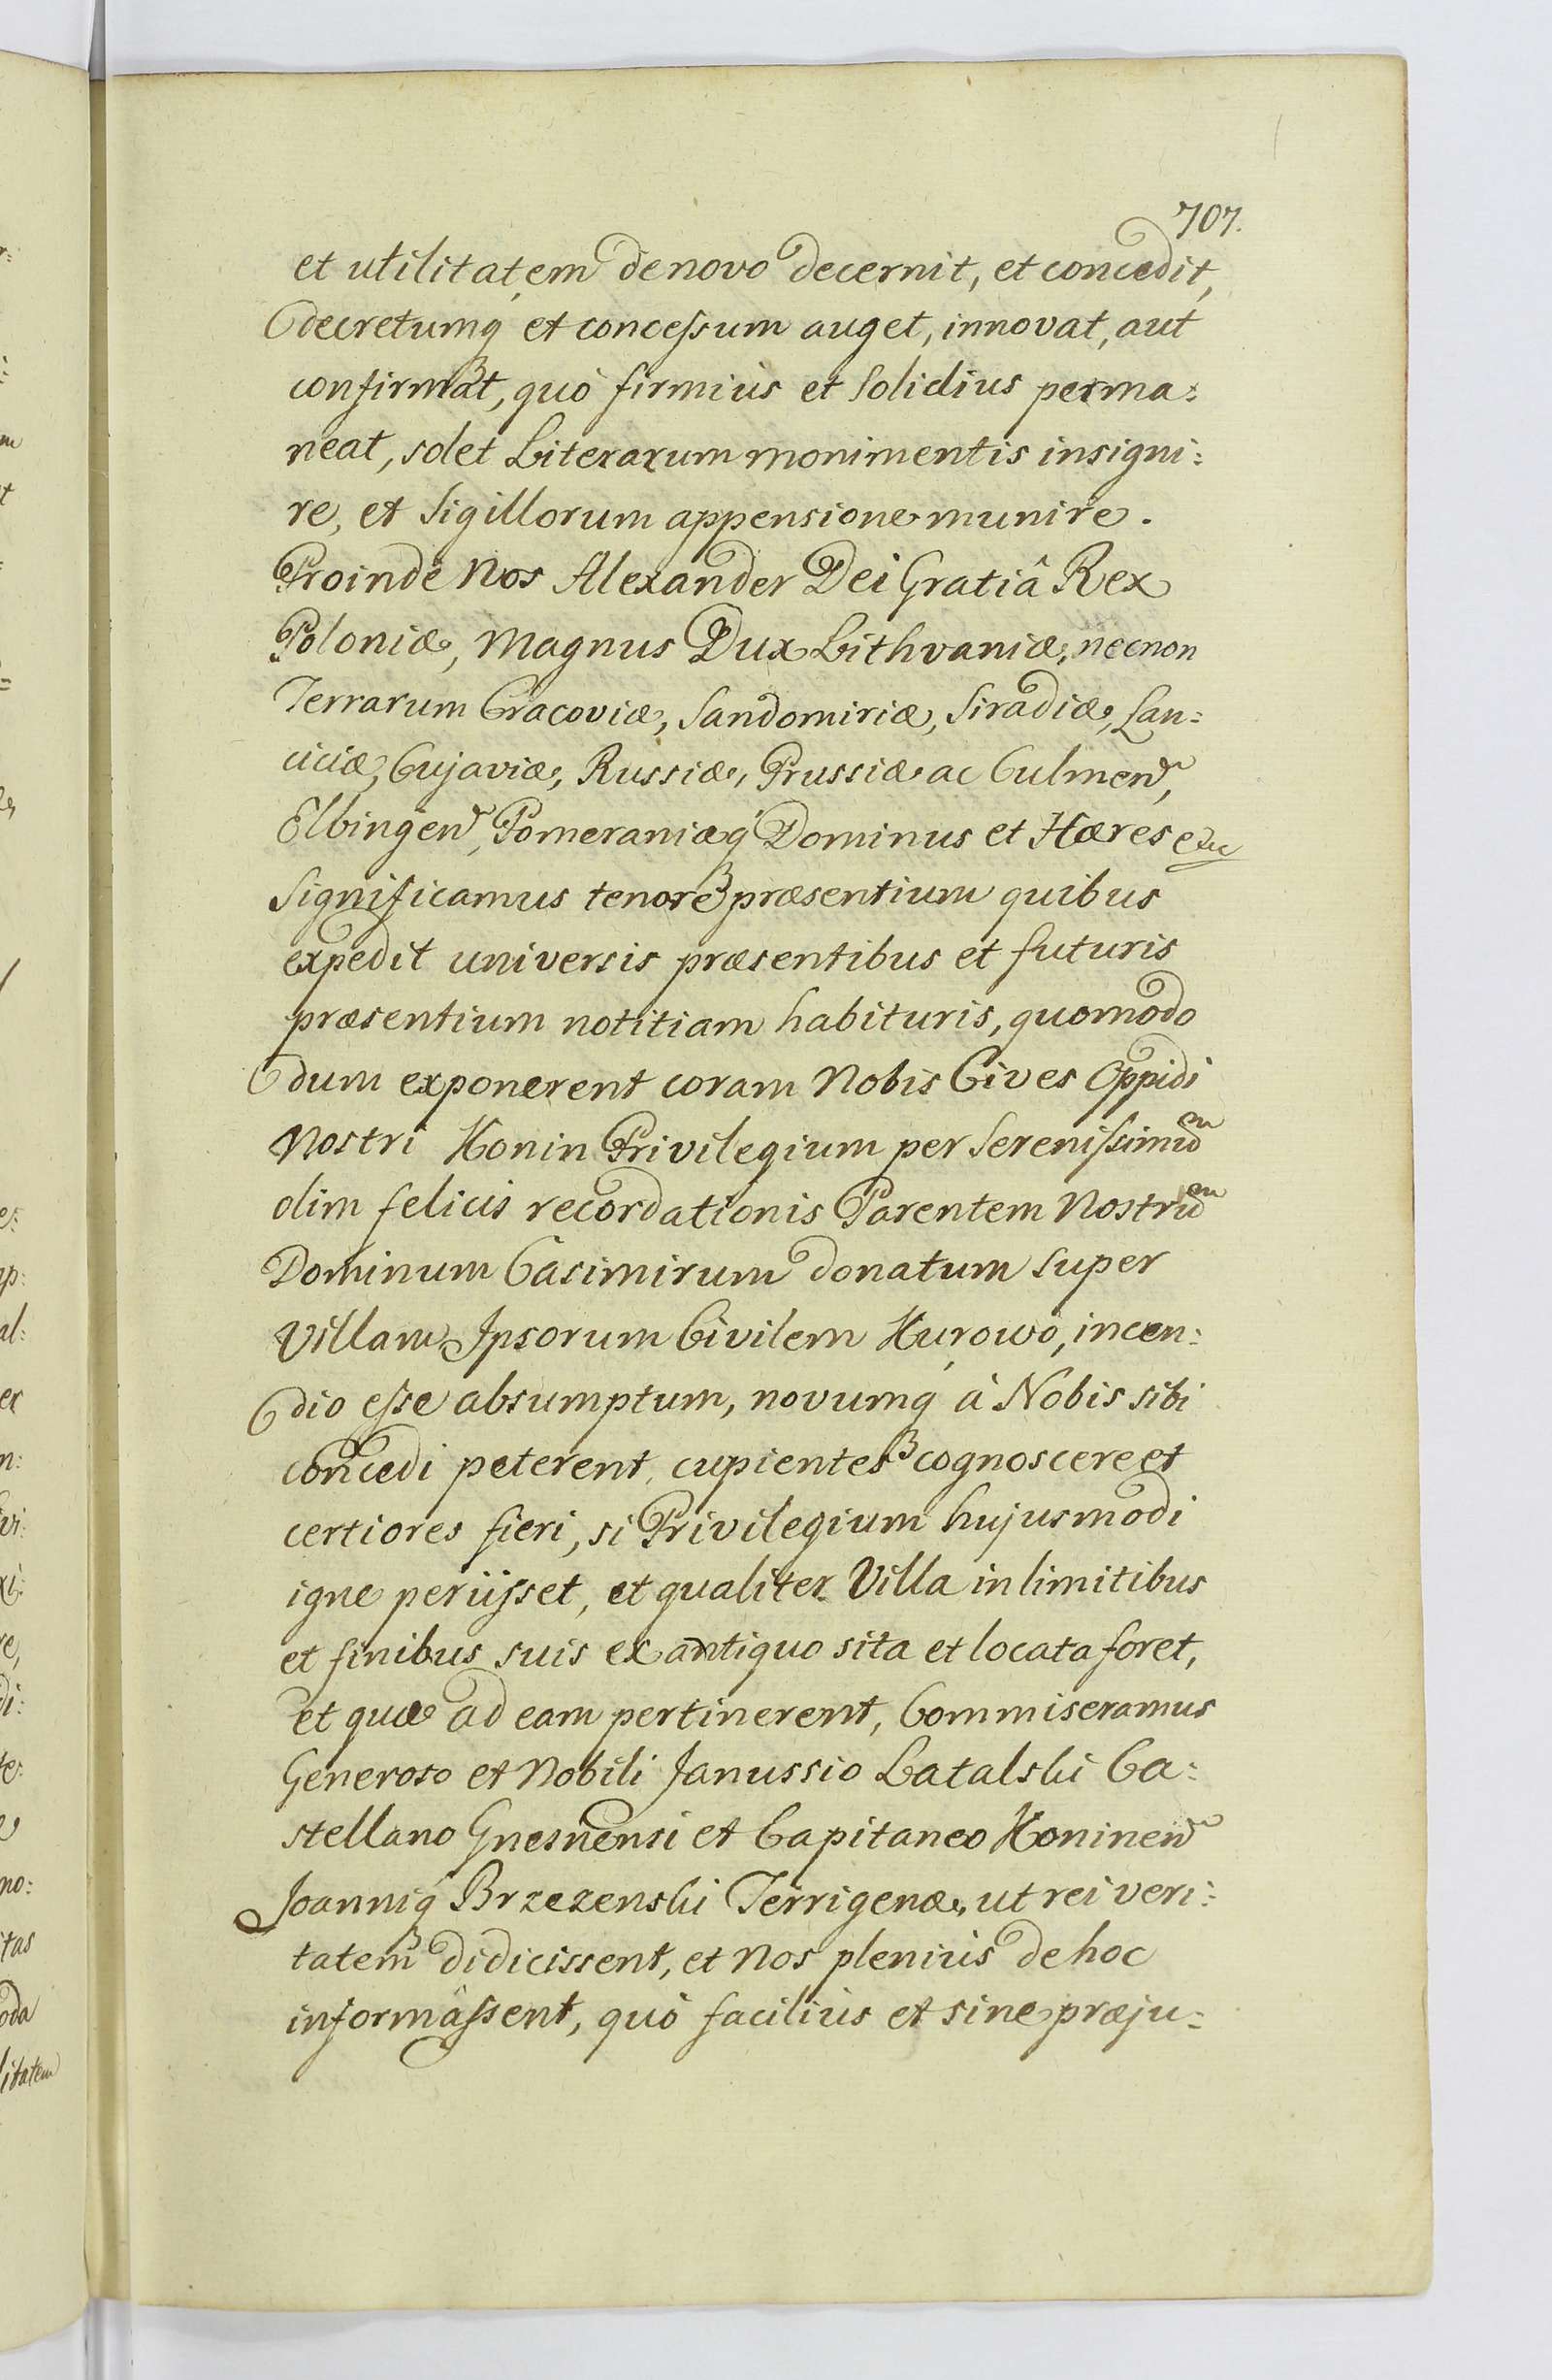 707.
et utilitatem denovo decernit, et concedit,
decretumq; et concessum auget, innovat, aut
confirmat, quò firmiùs et solidius perma:
neat, solet Literarum monimentis insigni:
re, et Sigillorum appensione munire.
Proinde Nos Alexander Dei Gratiâ Rex
Poloniæ, Magnus Dux Lithvaniæ, necnon
Terrarum Cracoviæ, Sandomiriæ, Siradiæ, Lan:
ciciæ, Cujaviæ, Russiæ, Prussiæ ac Culmen̄,
Elbingen̄, Pomeraniæq; Dominus et Hæres etc
Significamus tenore præsentium quibus
expedit universis præsentibus et futuris
præsentium notitiam habituris, quomodo
dum exponerent coram Nobis Cives Oppidi
Nostri Konin Privilegium per Serenissimum
olim felicis recordationis Parentem Nostrum
Dominum Casimirum donatum super
Villam Ipsorum Civilem Kurowo, incen:
dio esse absumptum, novumq; à Nobis sibi
concedi peterent, cupientes cognoscere et
certiores fieri, si Privilegium hujusmodi
igne periisset, et qualiter Villa in limitibus
et finibus suis ex antiquo sita et locata foret,
et quæ ad eam pertinerent, Commiseramus
Generoso et Nobili Janussio Latalski Ca:
stellano Gnesnensi et Capitaneo Koninen̄
Joanniq; Brzezenski Terrigenæ, ut rei veri:
tatem didicissent, et Nos pleniùs de hoc
informâssent, quò faciliùs et sine præju: